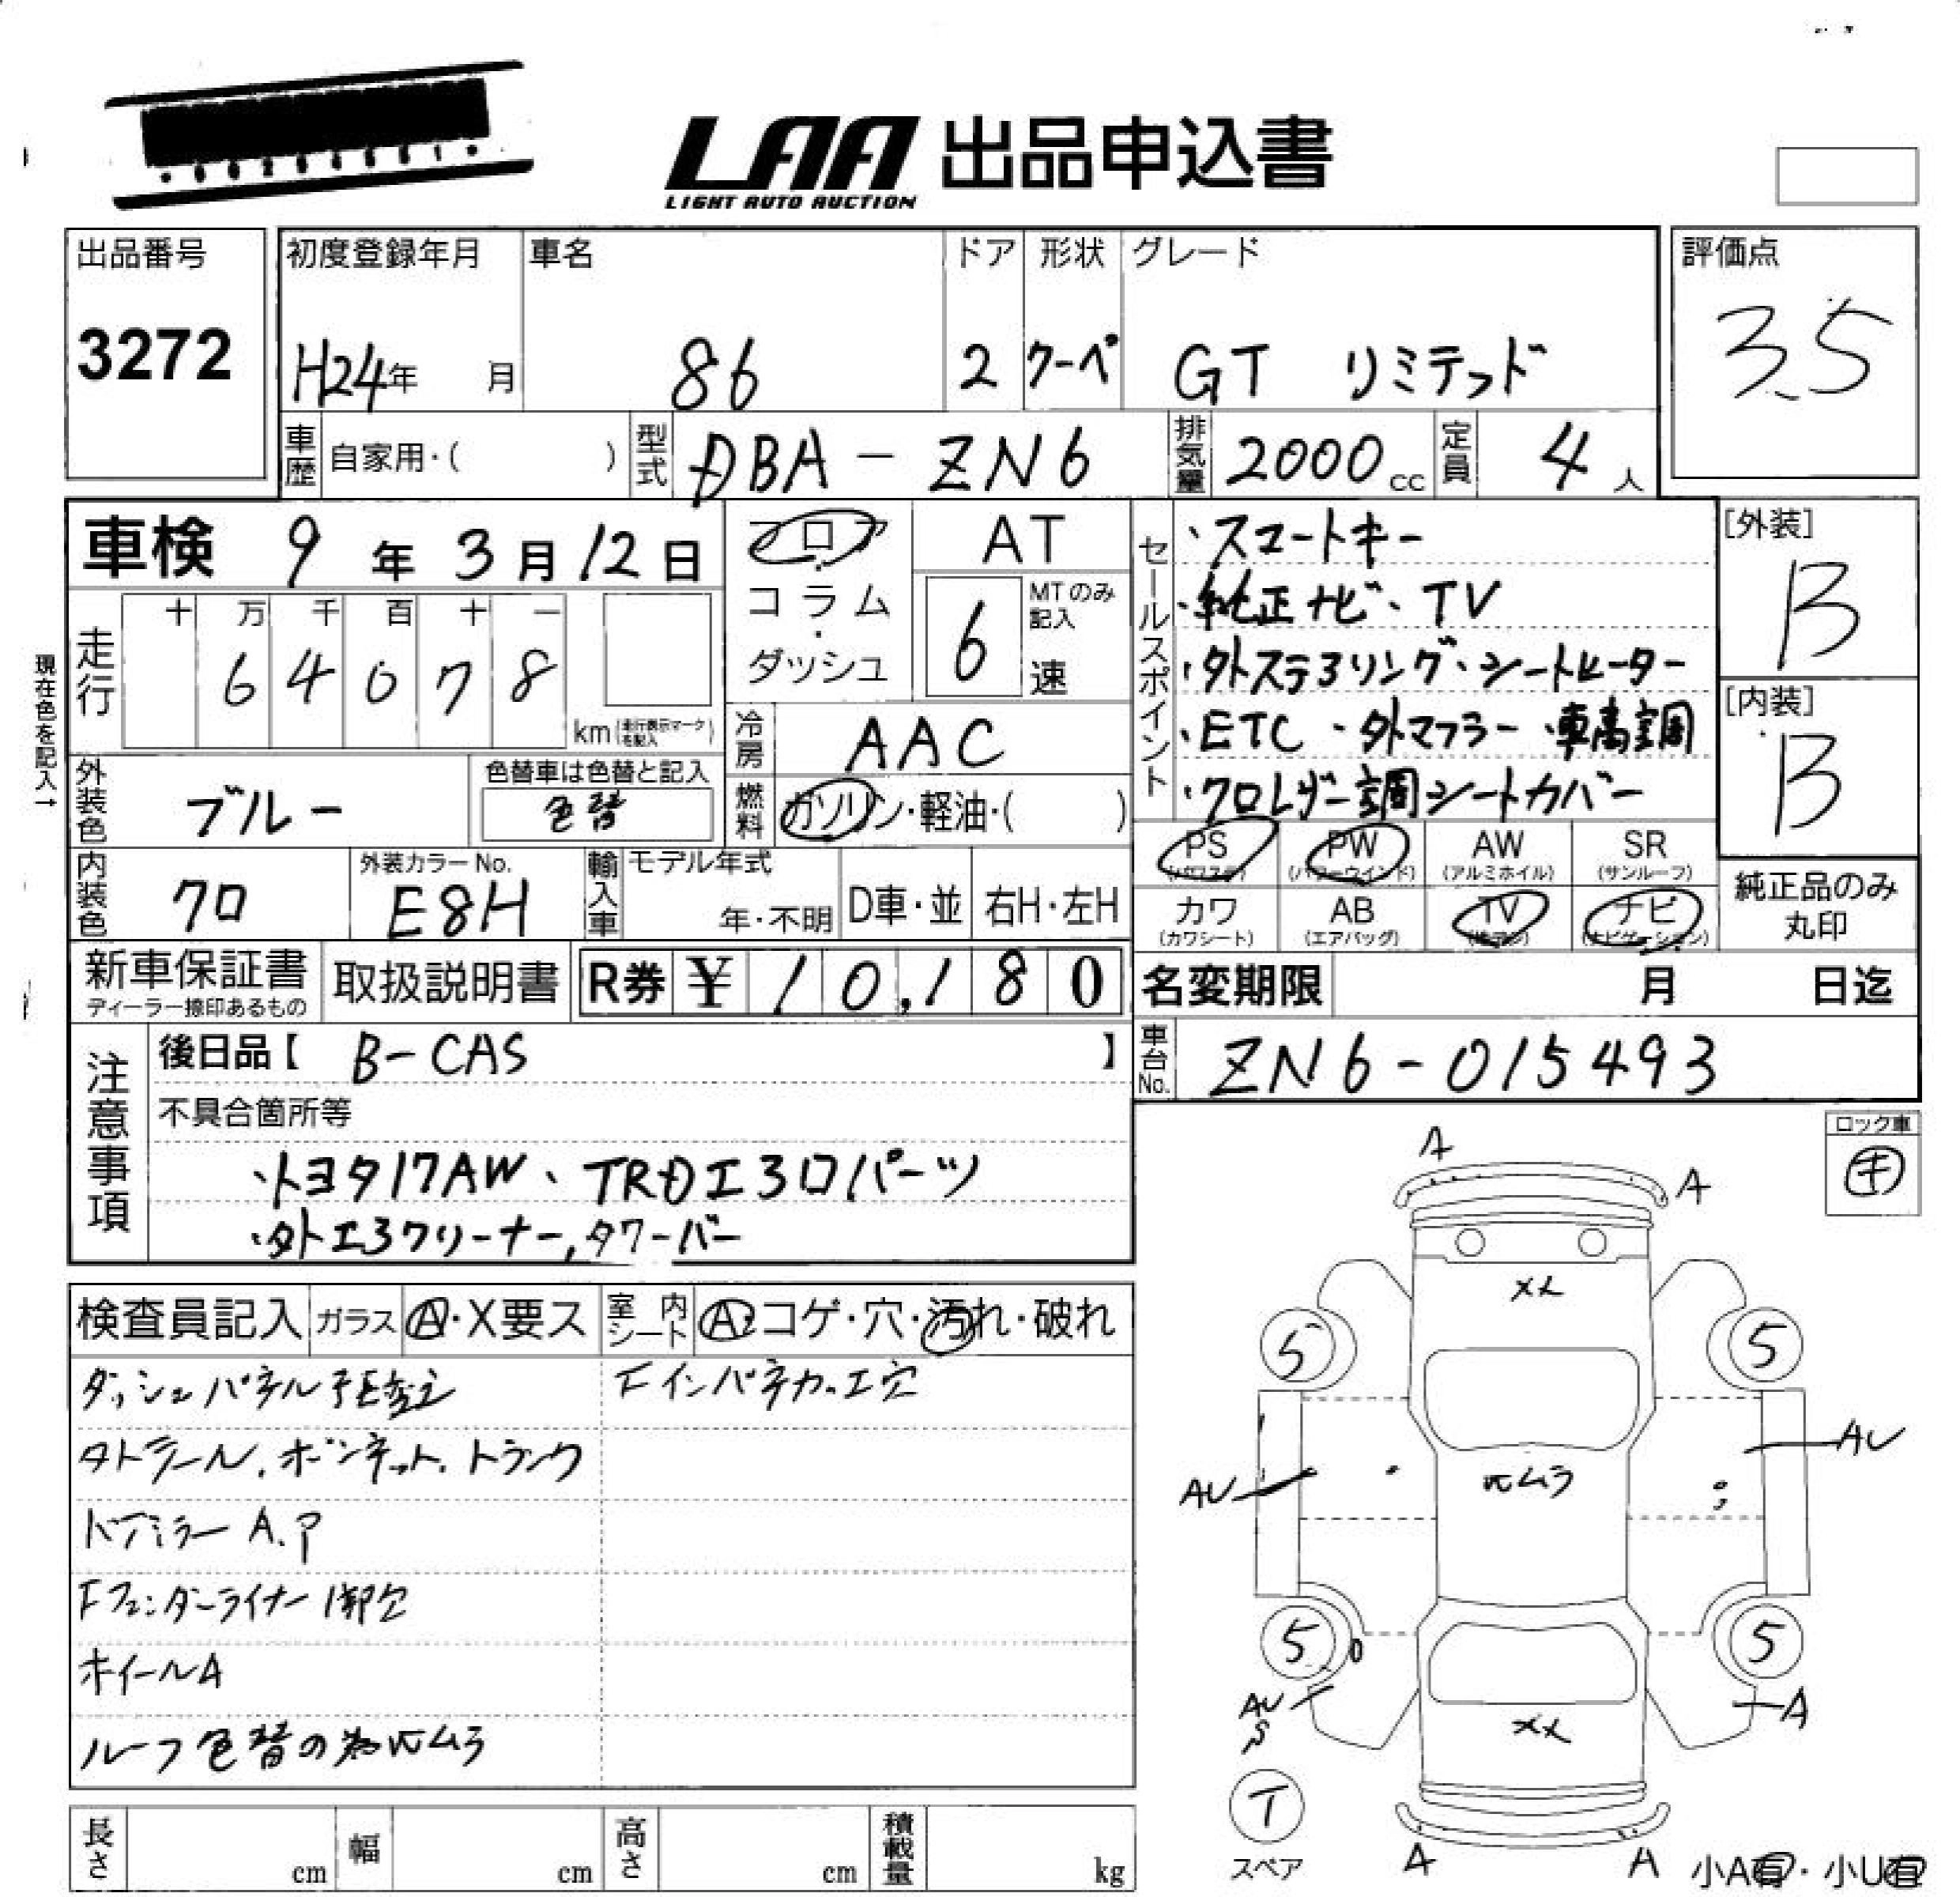 LAA 出品申込書
LIGHT AUTO AUCTION
出品番号
3272
初度登録年月
H24年 月
車名
86
ドア
2
形状
クーペ
グレード
GT リミテッド
評価点
3.5
車歴 自家用・( )
型式 DBA-ZN6
排気量 2000cc
定員 4人
現在色を記入→
車検 9年3月12日
走行
十 万 千 百 十 一
6 4 0 7 8
km (走行表示マークを記入)
フロア・コラム・ダッシュ
AT
6 速
MTのみ記入
冷房 AAC
燃料 ガソリン・軽油・( )
外装色 ブルー
色替車は色替と記入
色替
内装色 クロ
外装カラーNo.
E8H
輸入車
モデル年式
年・不明
D車・並
右H・左H
セールスポイント
・スマートキー
・純正ナビ・TV
・外ステヨリング・シートヒーター
・ETC ・外マフラー ・車高調
・クロレザー調シートカバー
[外装]
B
[内装]
B
PS (パワステ)
PW (パワーウインド)
AW (アルミホイル)
SR (サンルーフ)
カワ (カワシート)
AB (エアバッグ)
TV
ナビ (ナビゲーション)
純正品のみ丸印
新車保証書
ディーラー捺印あるもの
取扱説明書
R券 ¥ 10,180
名変期限 月 日迄
車台No. ZN6-015493
注意事項
後日品【 B-CAS 】
不具合箇所等
・トヨタ17AW、TRDエヨロパーツ
・外エヨクリーナー,タワーバー
ロック車
キ
検査員記入
ガラス Ⓐ・X要ス
室内シート Ⓐ・コゲ・穴・汚れ・破れ
ダッシュパネル
Fインパネカロエ穴
外テール.ボンネット.トランク
ドアミラー A.P
Fフェンダーライナー1部欠
ホイールA
ルーフ色替の為ハムラ
A
A
メ人
5
5
AU
AU
ハムラ
5
5
AU
S
A
メ人
T
スペア
A
A
小A有・小U有
長さ cm
幅 cm
高さ cm
積載量 kg